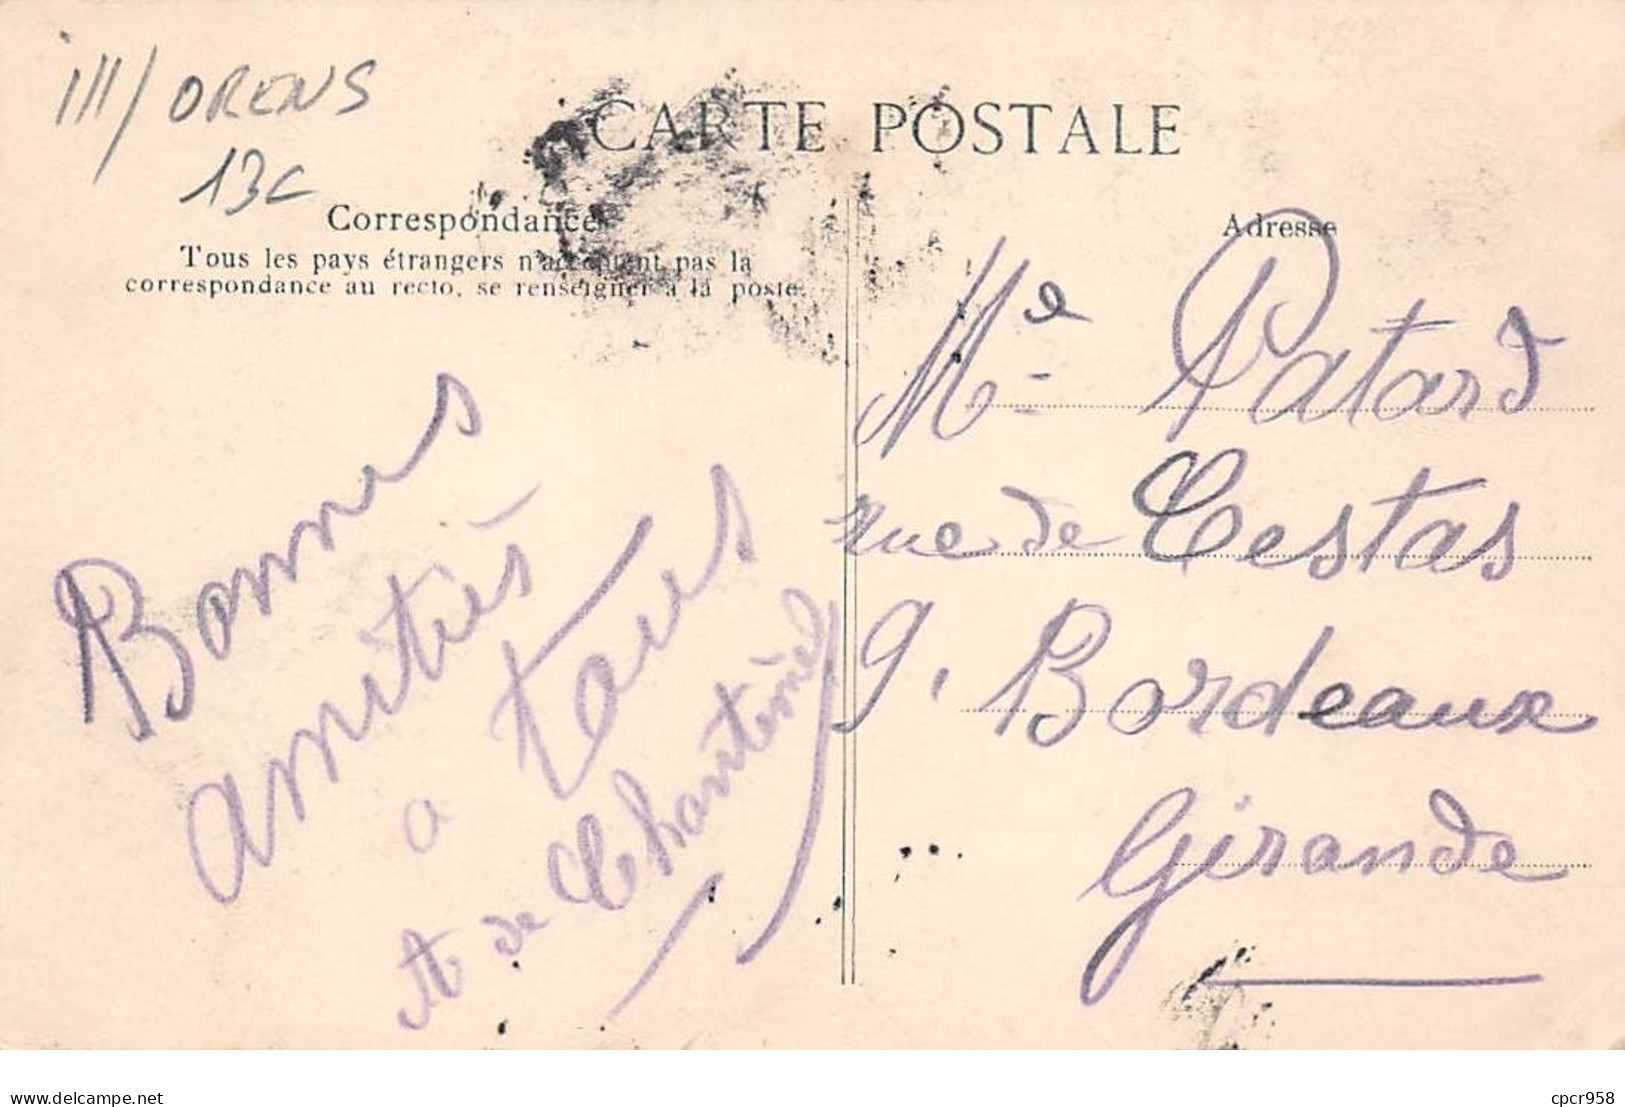 ill/ ORENS
13c
CARTE POSTALE
Correspondance
Tous les pays étrangers n'acceptent pas la
correspondance au recto, se renseigner à la poste.
Bonnes
amitiés
a tous
A de Chantérined
Adresse
Mle Patard
rue de Cestas
9, Bordeaux
Gironde
delcampe.net
cpcr958